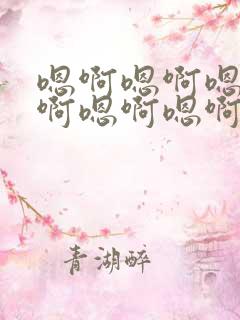 嗯啊嗯啊嗯
啊嗯啊嗯啊
青湖醉